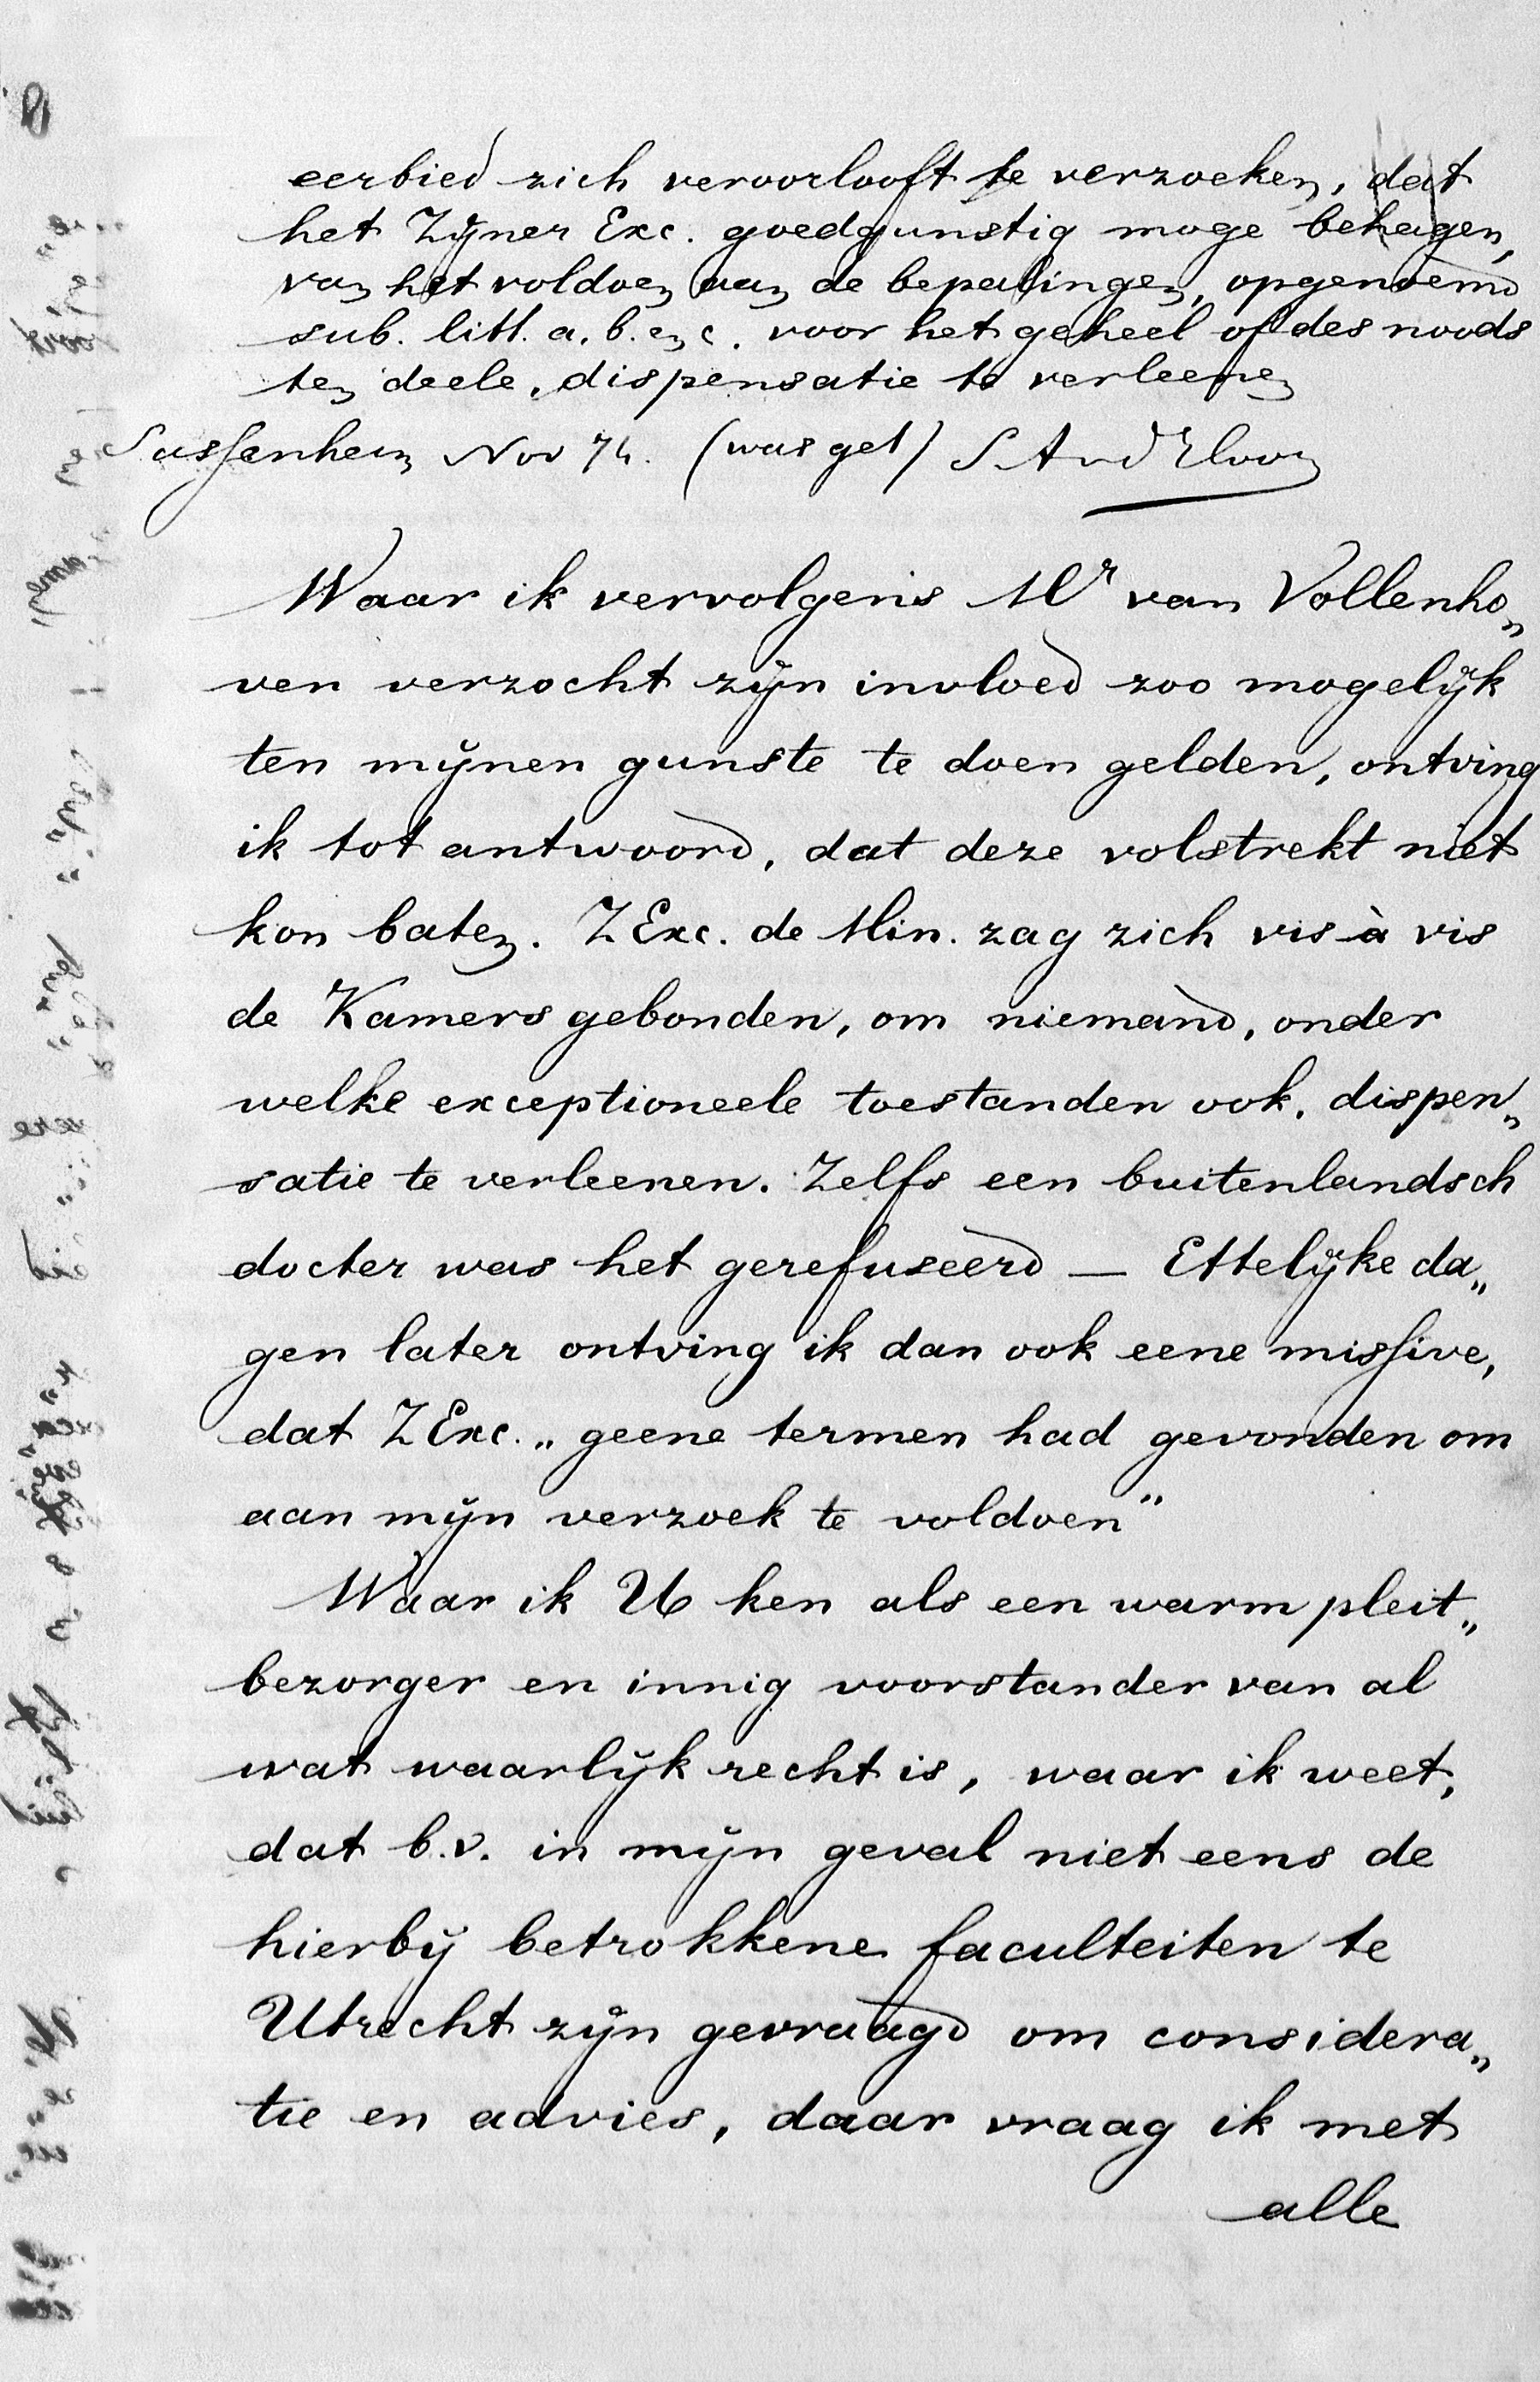 eerbied zich veroorlooft te verzoeken, dat
het Zijner Exc. goedgunstig moge behagen,
van het voldoen aan de bepalingen, opgenoemd
sub. litt. a. b. en c. voor het geheel of des noods
ten deele, dispensatie te verleenen
Sassenheim Nov 74. (was get)
Waar ik vervolgens Mr van Vollenho„
ven verzocht zijn invloed zoo mogelijk
ten mijnen gunste te doen gelden, ontving
ik tot antwoord, dat deze volstrekt niet
kon baten. Z Exc. de Min. zag zich vis à vis
de Kamers gebonden, om niemand, onder
welke exceptioneele toestanden ook, dispen„
satie te verleenen. Zelfs een buitenlandsch
docter was het gerefuseerd — Ettelijke da„
gen later ontving ik dan ook eene missive,
dat Z Exc. „geene termen had gevonden om
aan mijn verzoek te voldoen"
Waar ik U ken als een warm pleit„
bezorger en innig voorstander van al
wat waarlijk recht is, waar ik weet,
dat b.v. in mijn geval niet eens de
hierbij betrokkene faculteiten te
Utrecht zijn gevraagd om considera„
tie en advies, daar vraag ik met
alle